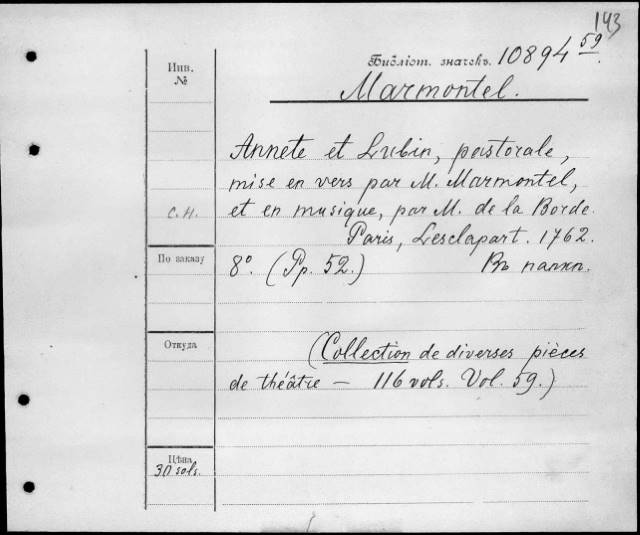 143
Библіот. значекъ. 10894 59.
Marmontel.
Инв.
№
Annete et Lubin, pastorale,
mise en vers par M. Marmontel,
С.Н. et en musique, par M. de la Borde.
Paris, Lesclapart. 1762.
По заказу
8°. (Pp. 52.) Въ папкѣ.
Откуда
(Collection de diverses pièces
de théâtre — 116 vols. Vol. 59.)
Цѣна
30 sols.